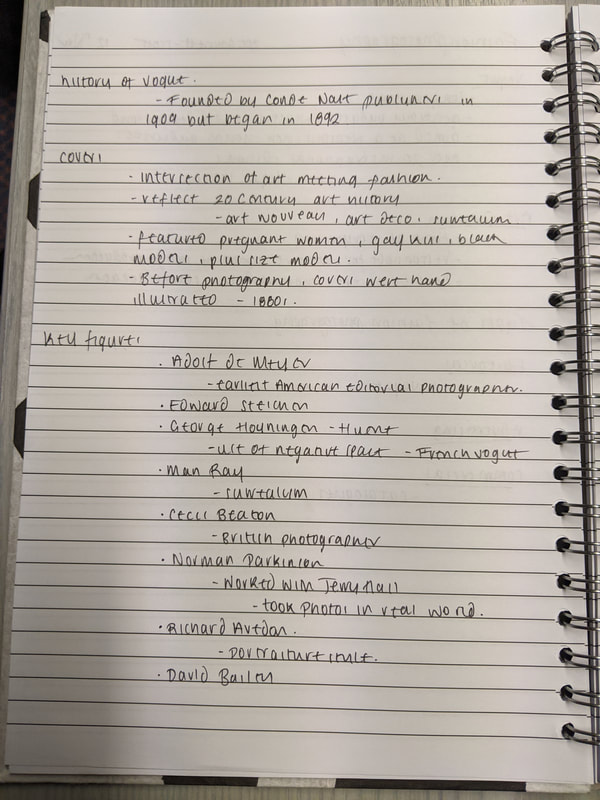 history of vogue.
- Founded by Conde Nast publishers in
1909 but began in 1892
covers
- Intersection of art meeting fashion.
- reflect 20 century art history
- art nouveau, art deco, surrealism.
- featured pregnant women, gay kiss, black
models, plus size models.
- Before photography, covers were hand
illustrated - 1880s.
key figures
• Adolf de Meyer
- earliest American editorial photographer.
• Edward Steichen
• George Hoyningen - Huene
- use of negative space - French vogue
• Man Ray
- surrealism
• Cecil Beaton
- British photographer
• Norman Parkinson
- worked with Jerry Hall
- took photos in real world.
• Richard Avedon.
- portraiture style.
• David Bailey